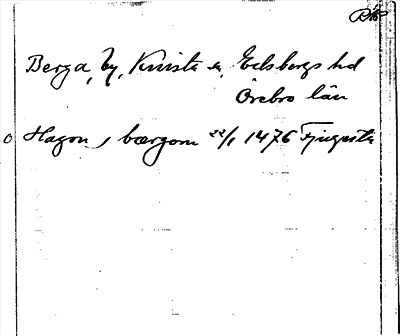 Berga, by, Knista sn, Edsbergs hd
Örebro län
o Hagon, i bærgom 22/1 1476 Fjugesta